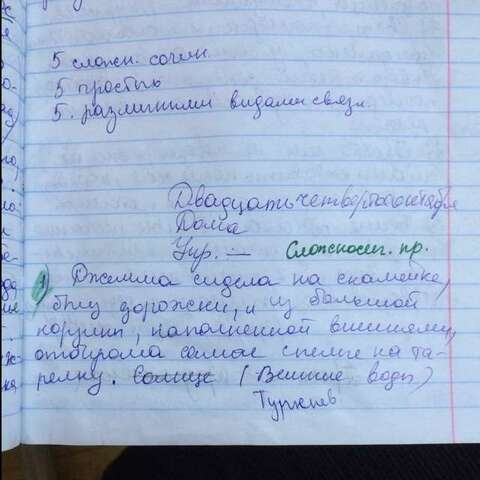 5 сложн. сочин.
5 простых
5. различными видами связи.
Двадцать четвертое октября
Дома
Упр. —
Сложносоч. пр.
1) Джемма сидела на скамейке,
близ дорожки, и из большой
корзины, наполненной вишнями,
отбирала самые спелые на та-
релку. Солнце (Вешние воды)
Тургенев